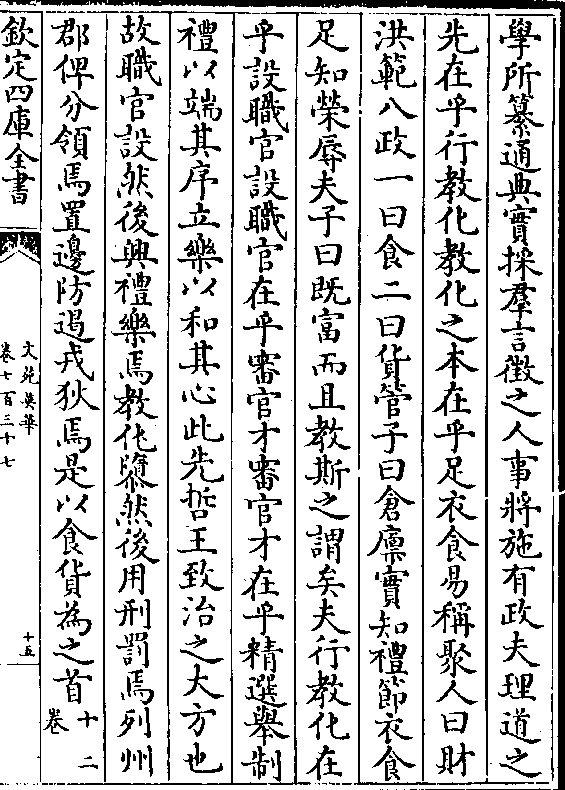 學所纂通典實採羣言徵之人事將施有政夫理道之
先在乎行教化教化之本在乎足衣食易稱聚人曰財
洪範八政一曰食二曰貨管子曰倉廪實知禮節衣食
足知榮辱夫子曰既富而且教斯之謂矣夫行教化在
乎設職官設職官在乎審官才審官才在乎精選舉制
禮以端其序立樂以和其心此先哲王致治之大方也
故職官設然後興禮樂焉教化隳然後用刑罰焉列州
郡俾分領焉置邊防遏戎狄焉是以食貨為之首十二
卷
欽定四庫全書
文苑英華
卷七百三十七
十五